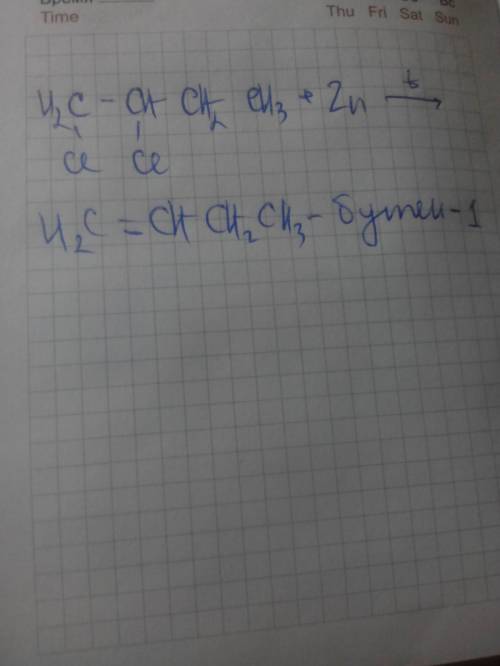 Время
Time
Thu Fri Sat Sun
H₂C - CH CH₂ CH₃ + Zn t→
Cl Cl
H₂C = CH CH₂CH₃ - бутен-1